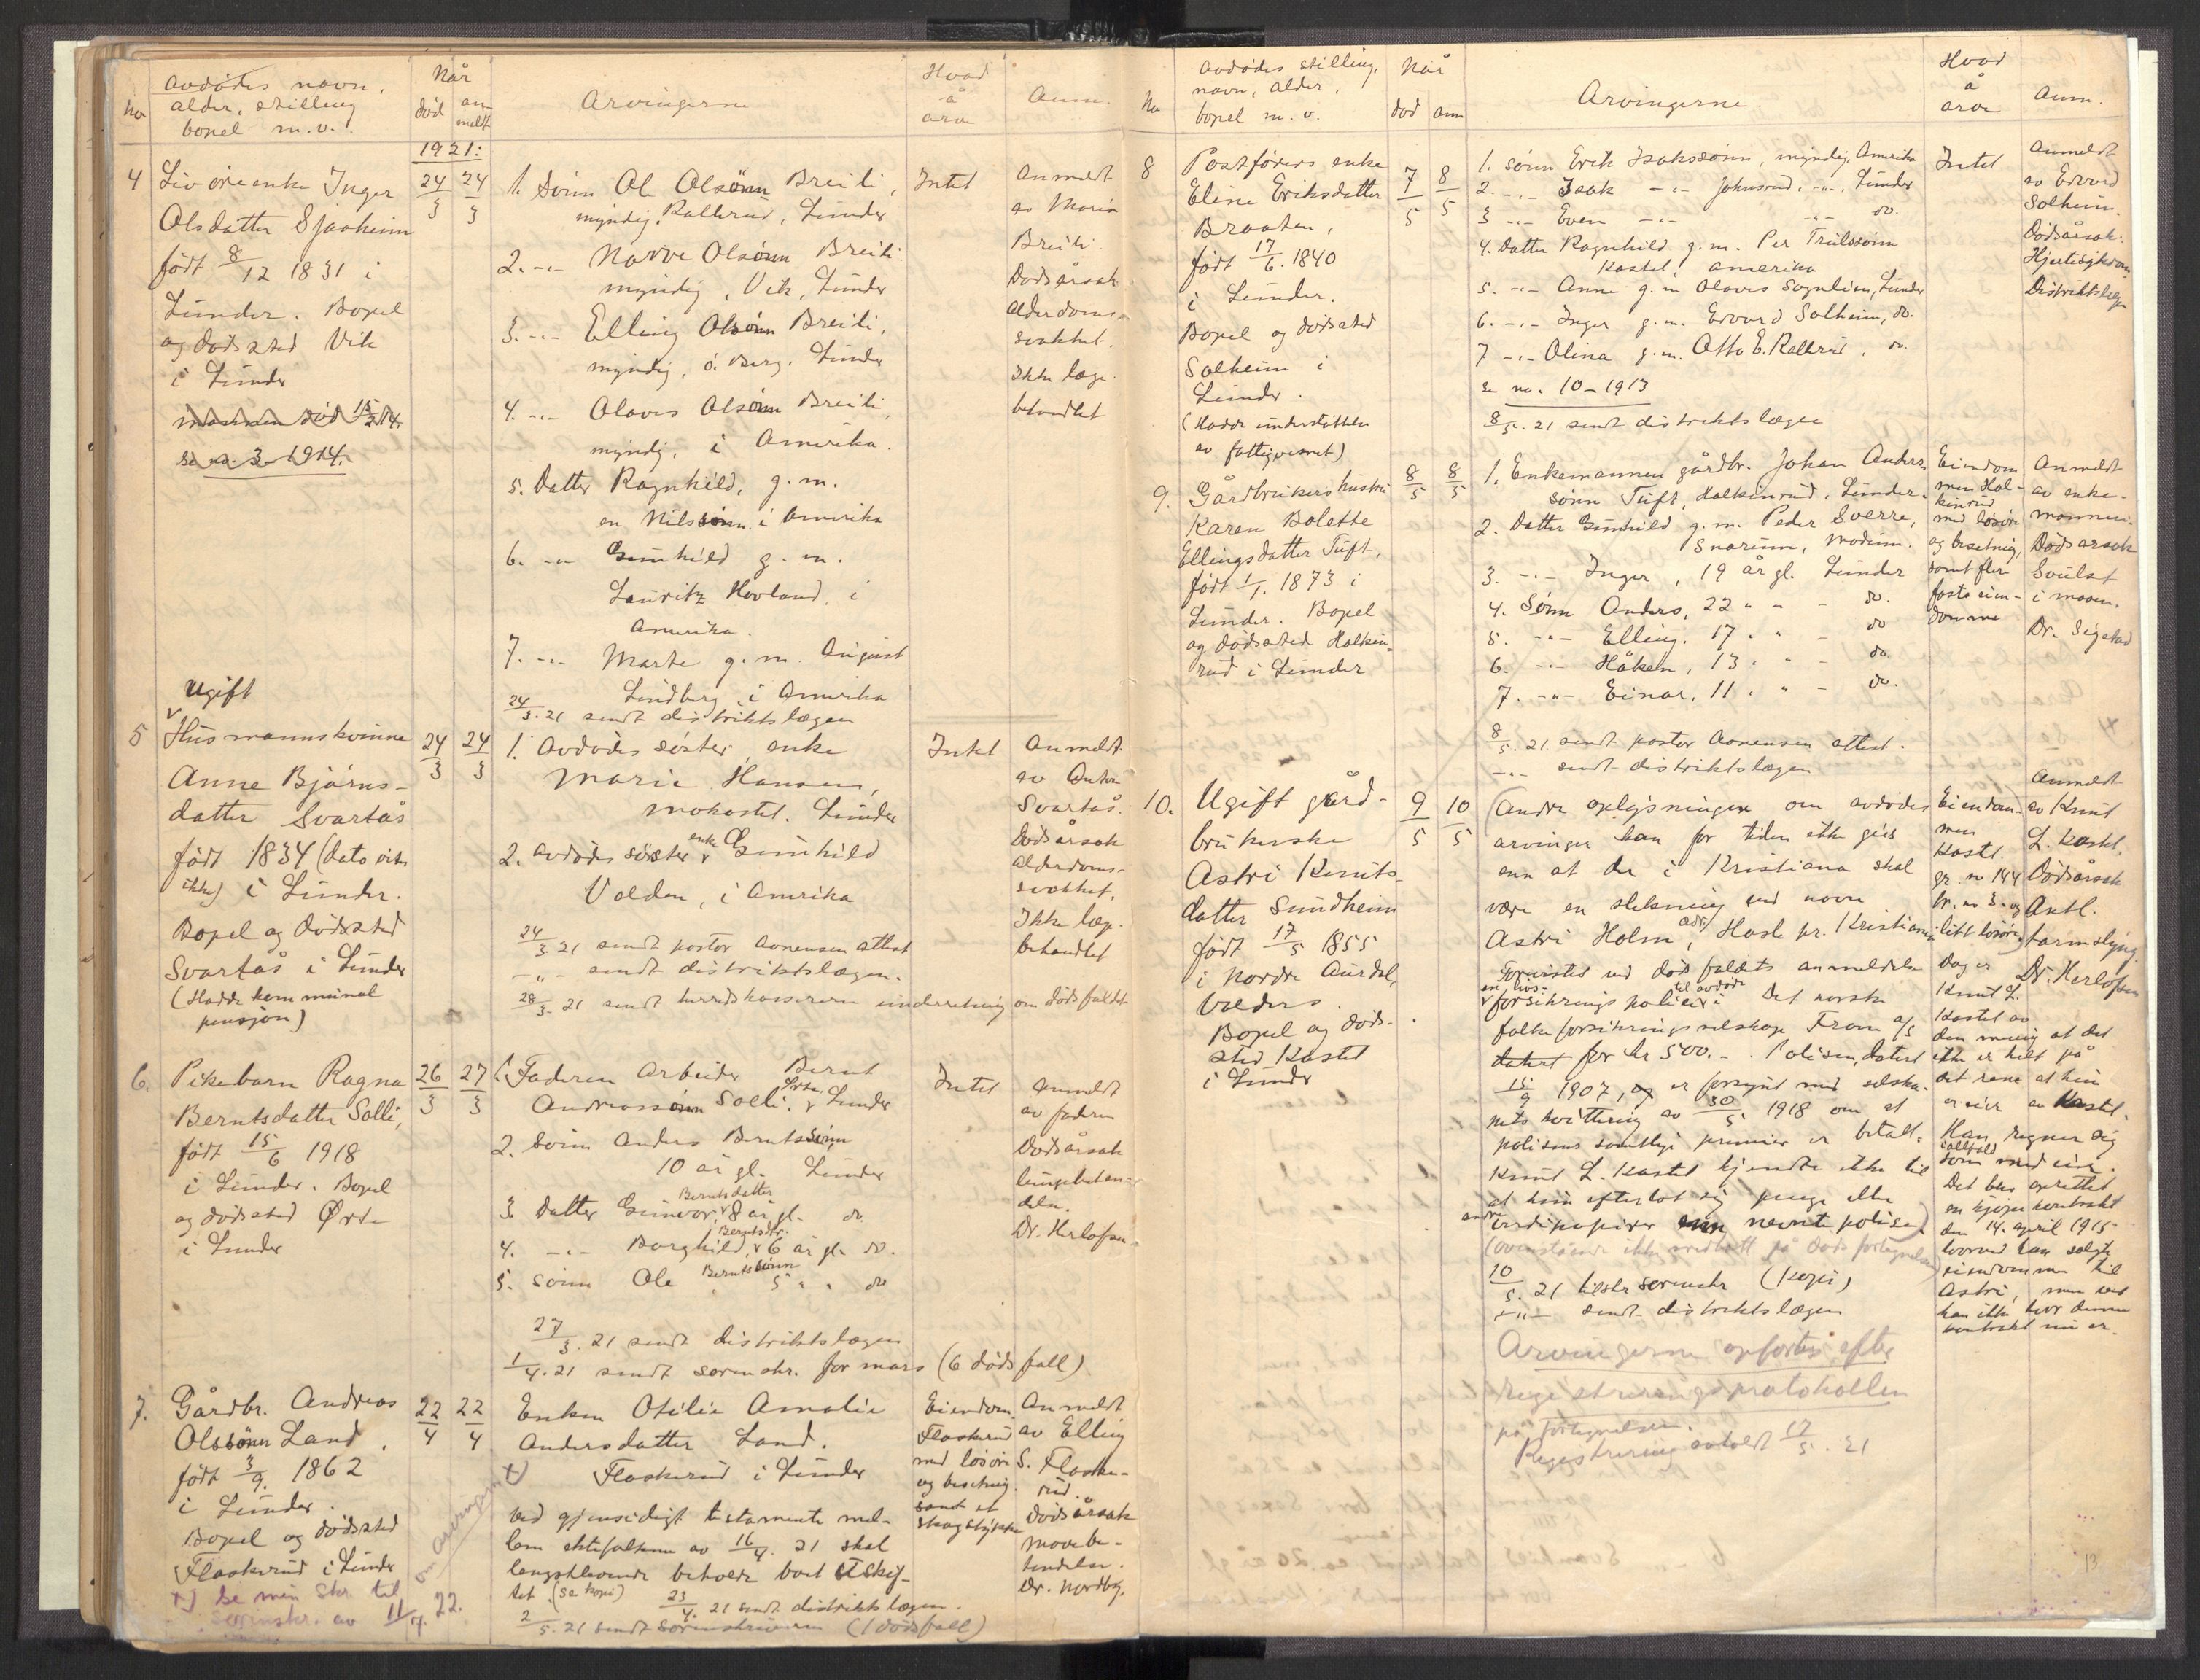 No
Avdødes navn,
alder, stilling
bopel m.v.
Når
død
an-
meldt
Arvingerne
Hvad
å
arve
Anm.
1921:
4
Livøreenke Inger
Olsdatter Sjaaheim
født 8/12 1831 i
Lunder. Bopel
og dødssted Vik
i Lunder
mannen død 15/2 14.
Se no. 3 - 1914.
24/3
24/3
1. Sønn Ol Olsønn Breili,
myndig. Kallerud, Lunder
2. -"- Narve Olsønn Breili
myndig, Vik, Lunder
3. -"- Elling Olsønn Breili,
myndig, ø. Berg. Lunder
4. -"- Olaves Olsønn Breili,
myndig, i Amerika.
5. Datter Ragnhild, g. m.
en Nilssønn i Amerika
6. -"- Gunhild g. m.
Lauritz Hovland, i
Amerika.
7. -"- Marte g. m. August
Lindberg, i Amerika
24/3. 21 sendt distriktslægen
Intet
Anmeldt
av Maria
Breili.
Dødsårsak
alderdoms-
svakhet.
Ikke læge-
behandlet
Ugift
5
Husmannskvinne
Anne Bjørns-
datter Svartås
født 1834 (dato vites
ikke) i Lunder.
Bopel og dødssted
Svartås i Lunder
(Hadde kommunal
pensjon)
24/3
24/3
1. Avdødes søster, enke
Marie Hansen,
Mokastet. Lunder
2. Avdødes søster enke Gunhild
Volden, i Amerika
24/3 21 sendt pastor Aonensen attest
-"- sendt distriktslægen.
28/3. 21 sendt herredskassereren underretning om dødsfaldet
Intet
Anmeldt
av Anton
Svartås.
Dødsårsak
alderdoms-
svakhet,
Ikke læge-
behandlet
6.
Pikebarn Ragna
Berntsdatter Solli,
født 15/6 1918
i Lunder. Bopel
og dødssted Ørte
i Lunder
26/3
27/3
1. Faderen Arbeider Bernt
Andreassønn Solli, Ørte, Lunder
2. Sønn Anders Berntssønn
10 år gl. Lunder
3. Datter Gunvor Berntsdatter 8 år gl. do.
4. -"- Borghild Berntsdtr. 6 år gl. do.
5. Sønn Ole Berntssønn 5 " " do
27/3. 21 sendt distriktslægen
1/4. 21 sendt sorenskr. for mars (6 dødsfall)
Intet
Anmeldt
av faderen
Dødsårsak
lungebeten-
delse.
Dr. Herlofsen
7.
Gårdbr. Andreas
Olssønn Land,
født 3/9. 1862
i Lunder.
Bopel og dødssted
Flaskerud i Lunder
x) Se min skr. til
sorenskr. av 11/4. 22.
om arvingene
22/4
22/4
Enken Otilie Amalie
Andersdatter Land.
Flaskerud i Lunder
Ved gjensidigt testamente mel-
lem ektefolkene av 16/4. 21 skal
lengstlevende beholde boet uskif-
tet. (se kopi) 23/4. 21 sendt distriktslægen.
2/5. 21 sendt sorenskriveren (1 dødsfall)
Eiendom.
Flaskerud
med løsøre
og besetning.
samt et
skogstykke
Anmeldt
av Elling
S. Flaske-
rud.
Dødsårsak
mavebe-
tendelse.
Dr. Nordby.
No
Avdødes stilling,
navn, alder,
bopel m. v.
Når
død
anm
Arvingerne.
Hvad
å
arve
Anm.
8
Postførers enke
Eline Eriksdatter
Braaten,
født 17/6. 1840
i Lunder.
Bopel og dødssted
Solheim i
Lunder.
(Hadde understøttelse
av fattigvesenet)
7/5
8/5
1. Sønn Erik Isakssønn, myndig, Amerika
2. -"- Isak -"- Johnsrud, -"- Lunder
3 -"- Even -"- -"- do.
4. Datter Ragnhild g. m. Per Trulssønn
Kastet, Amerika
5. -"- Anne g. m. Olaves Sognlien, Lunder
6. -"- Inger g. m. Edvard Solheim, do.
7 -"- Olina g. m. Otto E. Kallerud, do.
se no. 10 - 1913
8/5. 21 sendt distriktslægen
Intet
Anmeldt
av Edvard
Solheim.
Dødsårsak:
Hjertesykdom
Distriktslægen
9.
Gårdbrukershustru
Karen Bolette
Ellingsdatter Tuft,
født 1/1. 1873 i
Lunder. Bopel
og dødssted Halken-
rud i Lunder
8/5
8/5
1. Enkemannen gårdbr. Johan Anders-
sønn Tuft, Halkinrud, Lunder.
2. Datter Gunhild g. m. Peder Sverre,
Snarum, Modum.
3. -"- Inger, 19 år gl. Lunder
4. Sønn Anders, 22 " " - do.
5. -"- Elling. 17 " " - do
6. -"- Håken, 13 " " - do
7. -"- Einar, 11 " " - do.
8/5. 21 sendt pastor Aonensen attest.
-"- sendt distriktslægen
Eiendom-
men Hal-
kinrud
med løsøre
og besetning,
samt flere
faste eien-
domme
Anmeldt
av enke-
mannen.
Dødsårsak
Svulst
i maven.
Dr. Sigstad
10.
Ugift gård-
brukerske
Astri Knuts-
datter Sundheim
født 17/5 1855
i Nordre Aurdal,
Valdres.
Bopel og døds-
sted Kastet
i Lunder
9/5
10/5
(Andre oplysninger om avdødes
arvinger kan for tiden ikke gies
enn at der i Kristiania skal
være en slektning ved navn
Astri Holm, adr. Hasle pr. Kristiania
Forevistes ved dødsfaldets anmeldelse
en livs-forsikringspolice til avdøde i Det norske
folkeforsikringsselskap Fram A/S
datert for kr 500.-. Polisen, datert
15/9 1907, og er forsynt med selska-
pets kvittering av 30/5 1918 om at
polisens samtlige premier er betalt.
Knut L. Kastet kjendte ikke til
at hun efterlot sig penge eller
andre verdipapirer enn nevnte polise.)
(ovenstående ikke medtatt på dødsfortegnelsen)
10/5. 21 tilstr sorenskr (Kopi)
-"- sendt distriktslægen
Arvingerne opføres efter
registreringsprotokollen
på fortegnelsen.
Registrering avholdt 17/5. 21
Eiendom-
men
Kastet
gr. no 144
br. no 3. og
litt løsøre,
Dog er
Knut L.
Kastet av
den mening at det
ikke er helt på
det rene at hun
er eier av Kastet.
Han regner sig
iallfald
som medeier.
Det blev oprettet
en kjøpekontrakt
den 14. april 1915
hvorved han solgte
eiendommen til
Astri, men vet
han ikke hvor denne
kontrakt nu er.
Anmeldt
av Knut
L. Kastet.
Dødsårsak
Antl.
tarmslyng.
Dr. Herlofsen
13